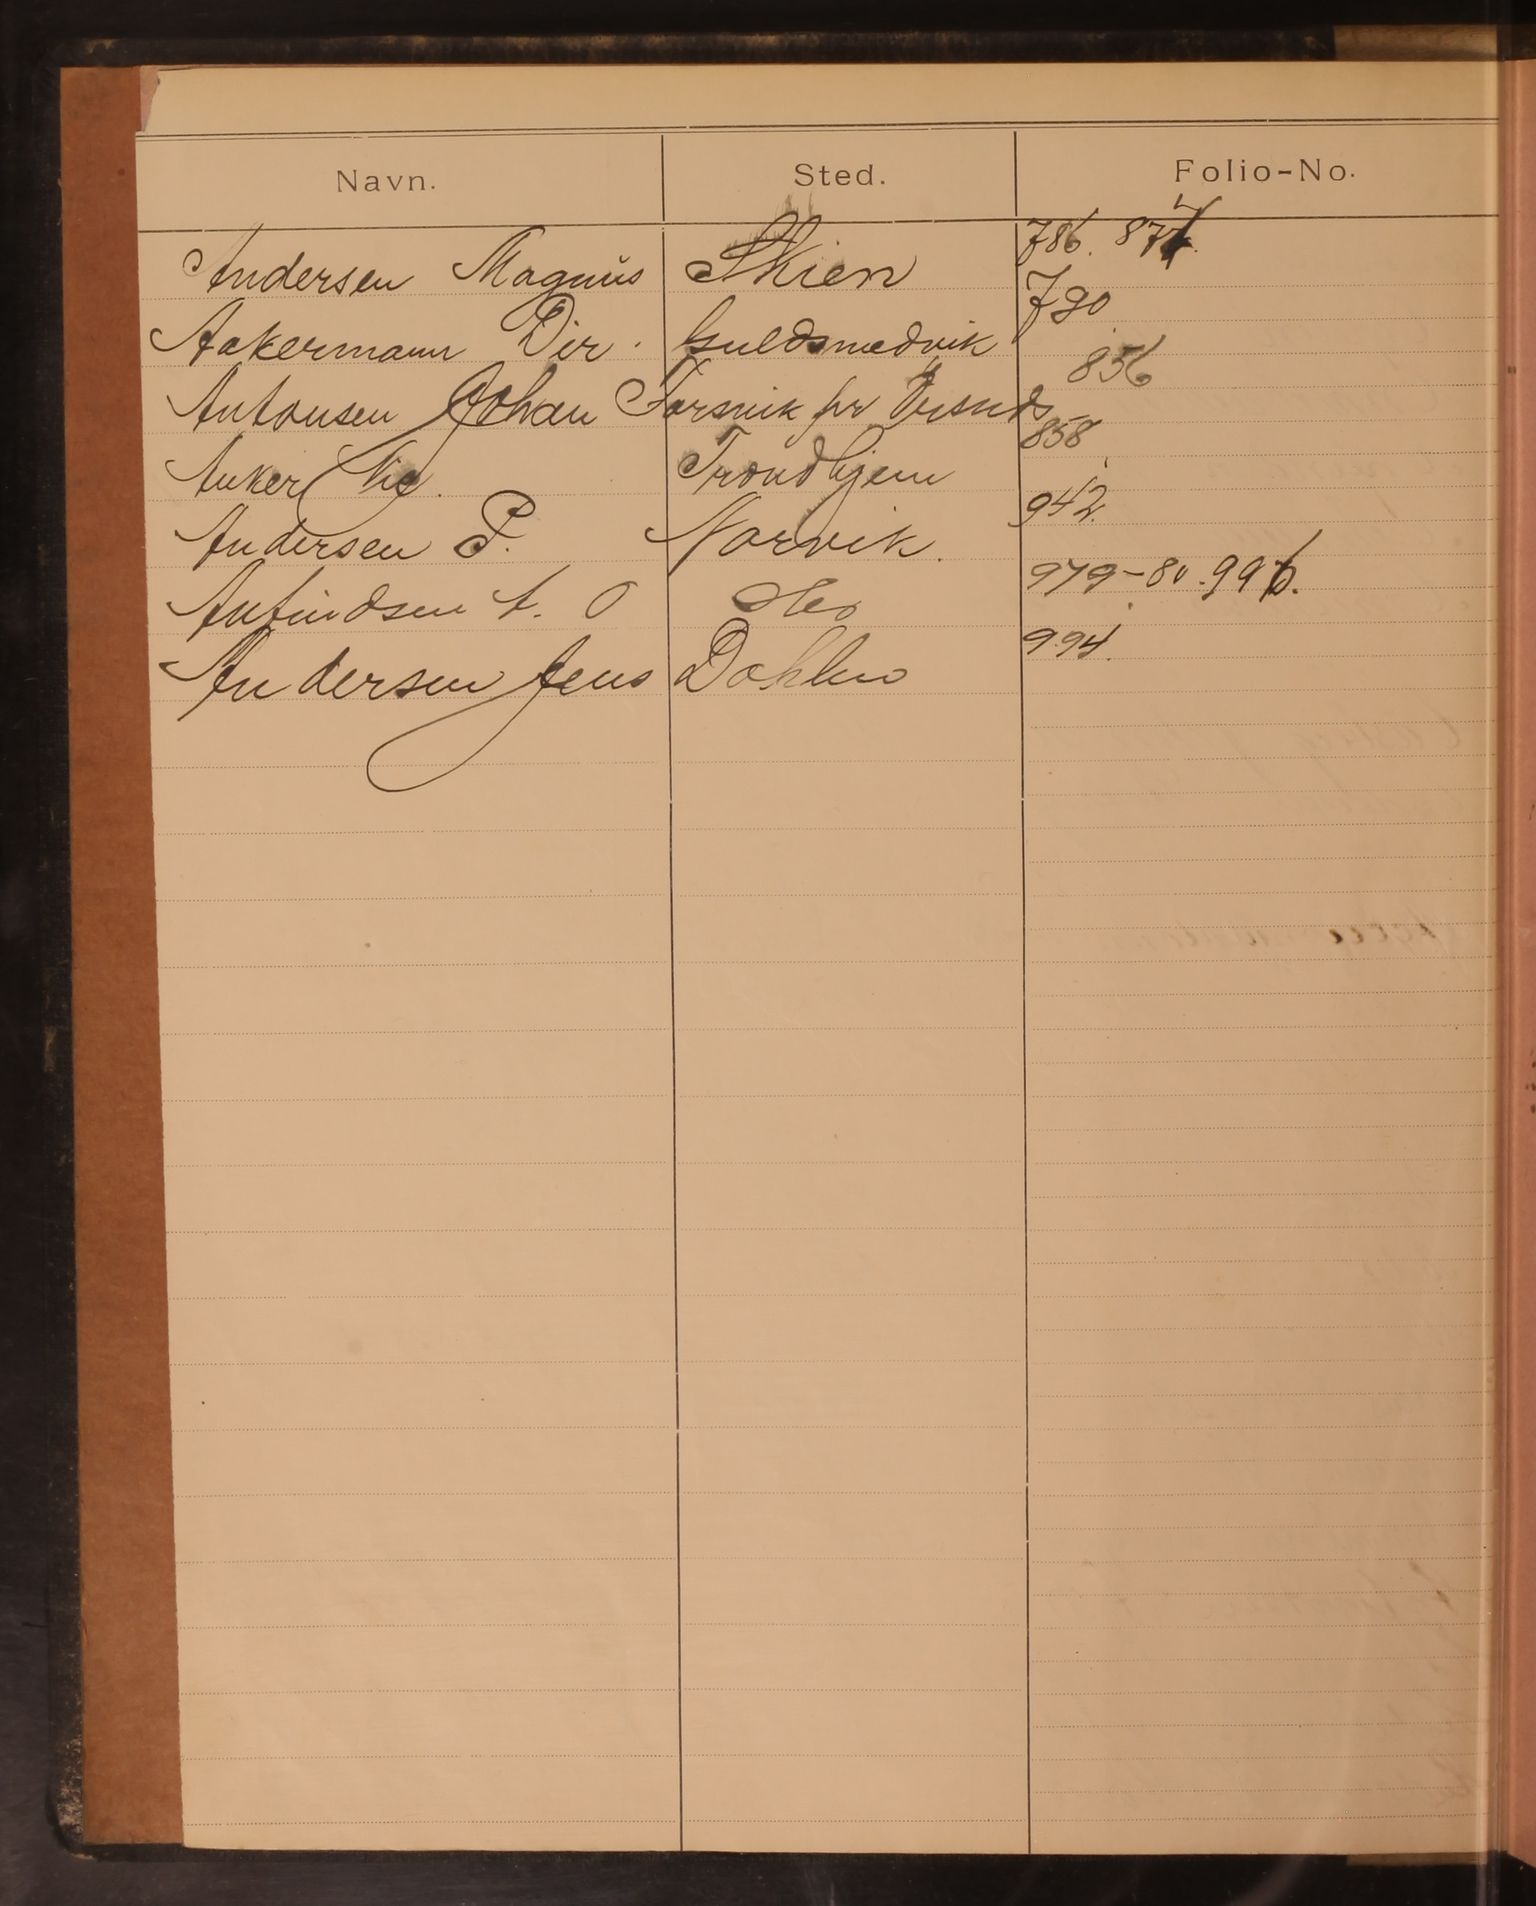 Navn. Sted. Folio-No.
Andersen Magnus Skien 786. 877
Aakermann Dir. Guldsmedvik 790
Antonsen Johan Forsvik pr 856
Anker Trondhjem 858
Andersen P. Narvik. 942.
A. O 979-80. 996.
Andersen Jens 994.